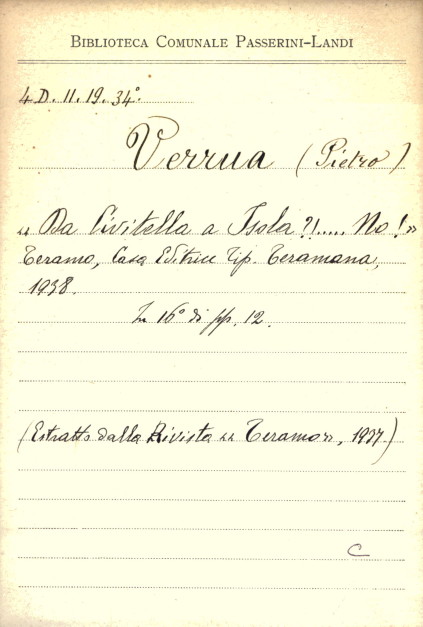 BIBLIOTECA COMUNALE PASSERINI-LANDI
4 D. II. 19. 34°.
Verrua (Pietro)
« Da Civitella a Isola?!..... No!»
Teramo, Casa Editrice Tip. Teramana,
1938.
In 16° di pp. 12.
(Estratto dalla Rivista « Teramo», 1937.)
C